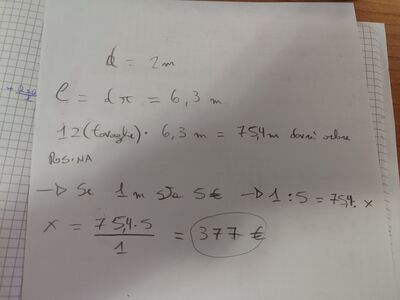 d = 2m
C = d π = 6,3 m
12 (tovaglie) · 6,3 m = 75,4 m dovrà
ROSINA
→ Se 1 m sta 5€ → 1 : 5 = 75,4 : x
x = 75,4·5 / 1 = 377 €